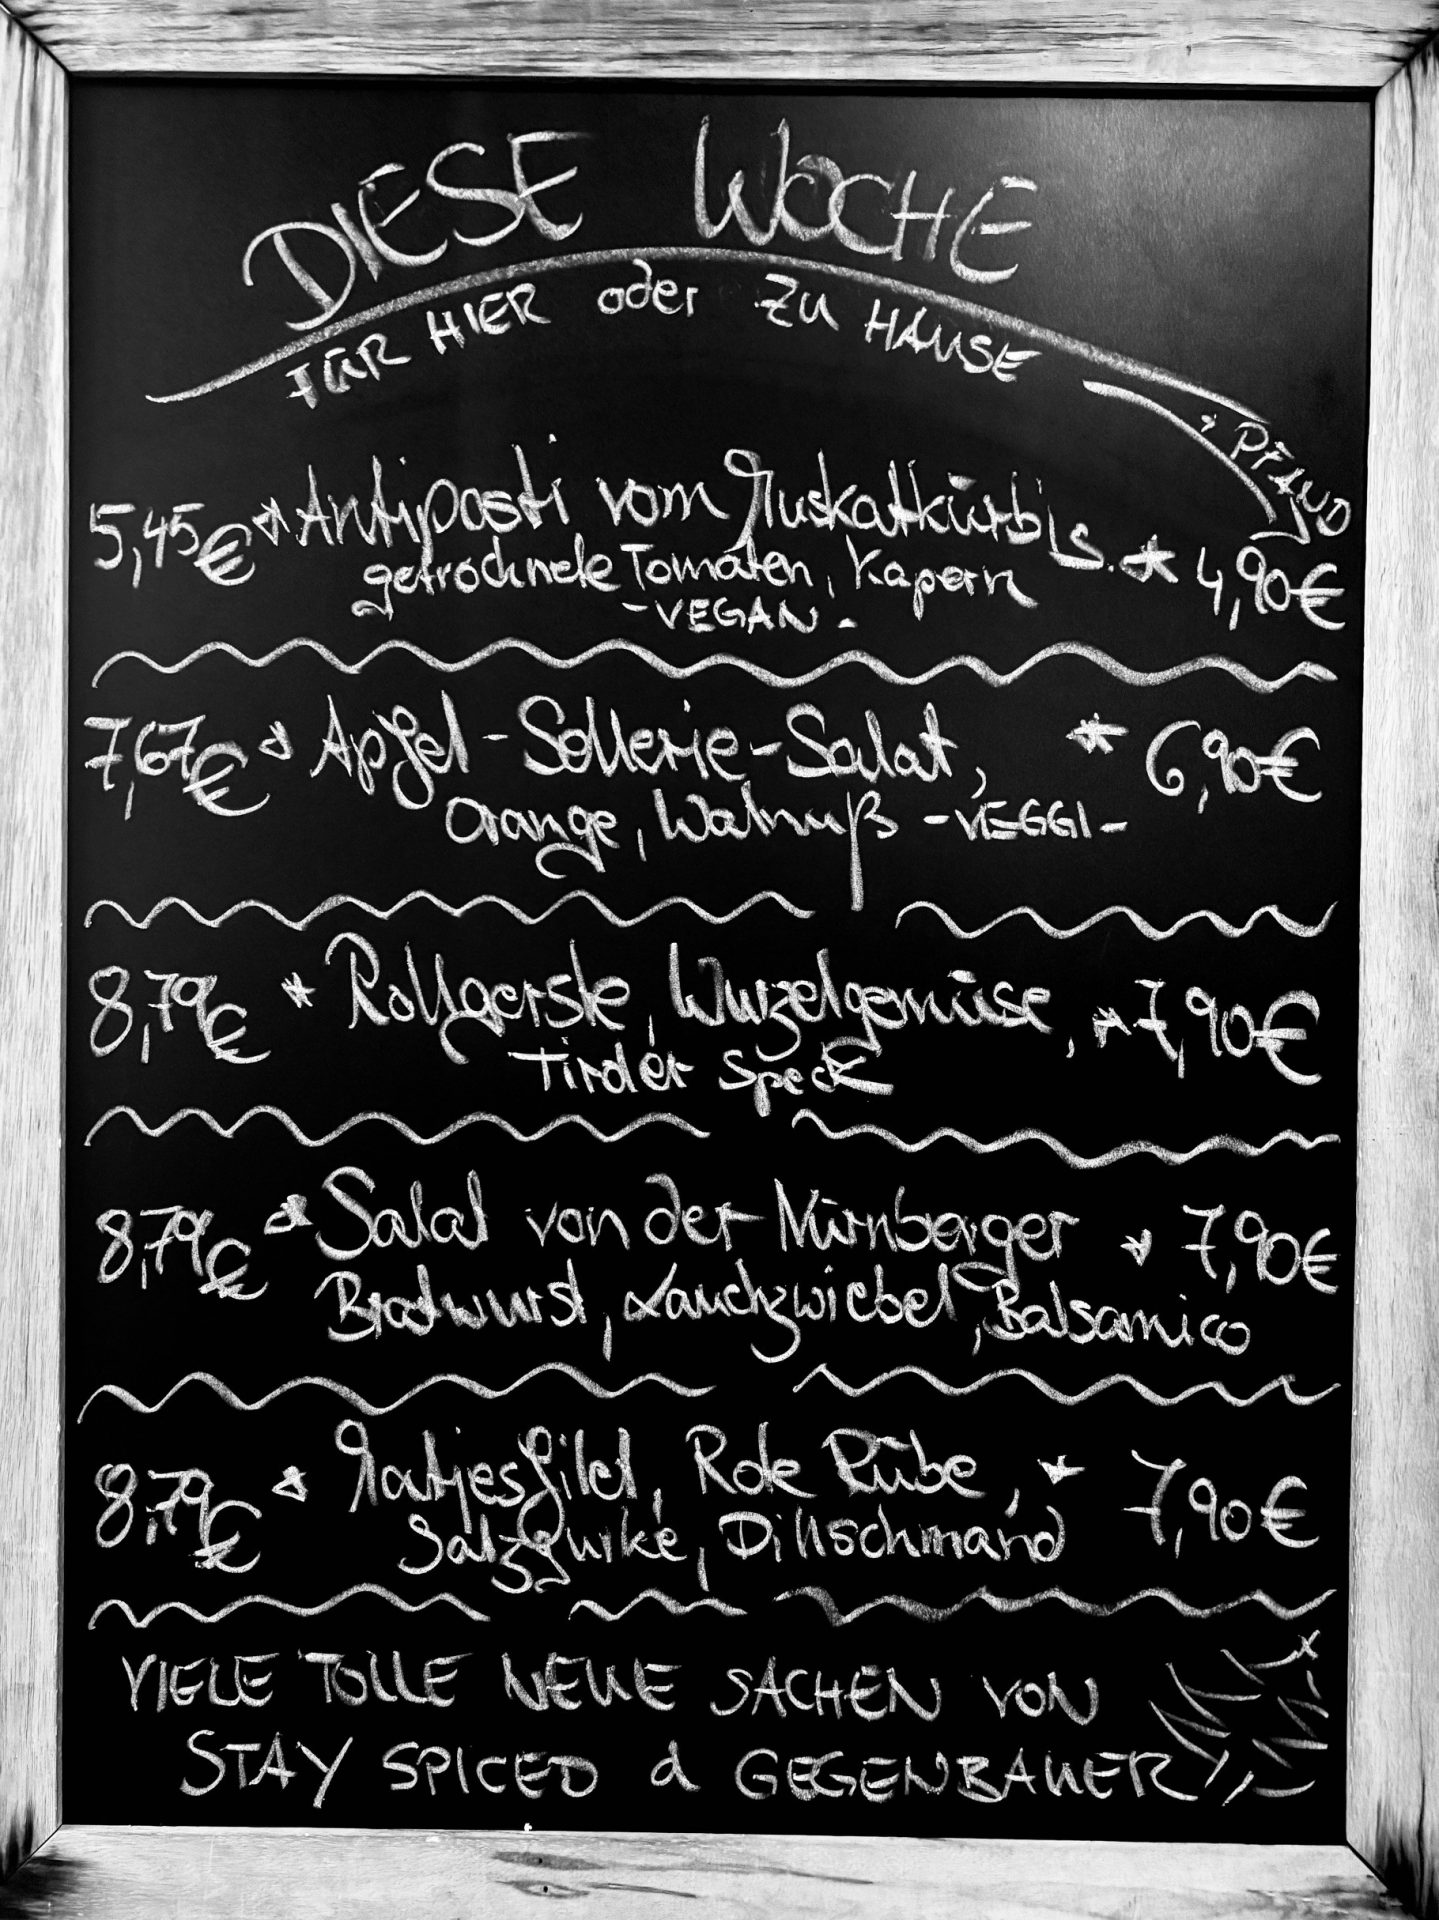 DIESE WOCHE
FÜR HIER oder ZU HAUSE
+ PFAND
5,45€ * Antipasti vom Muskatkürbis. * 4,90€
getrocknete Tomaten, Kapern
- VEGAN -
7,67€ * Apfel-Sellerie-Salat, * 6,90€
Orange, Walnuß - VEGGI -
8,79€ * Rollgerste, Wurzelgemüse, * 7,90€
Tiroler Speck
8,79€ * Salat von der Nürnberger * 7,90€
Bratwurst, Lauchzwiebel, Balsamico
8,79€ * Matjesfilet, Rote Rübe, * 7,90€
Salzgurke, Dillschmand
VIELE TOLLE NEUE SACHEN VON
STAY SPICED & GEGENBAUER